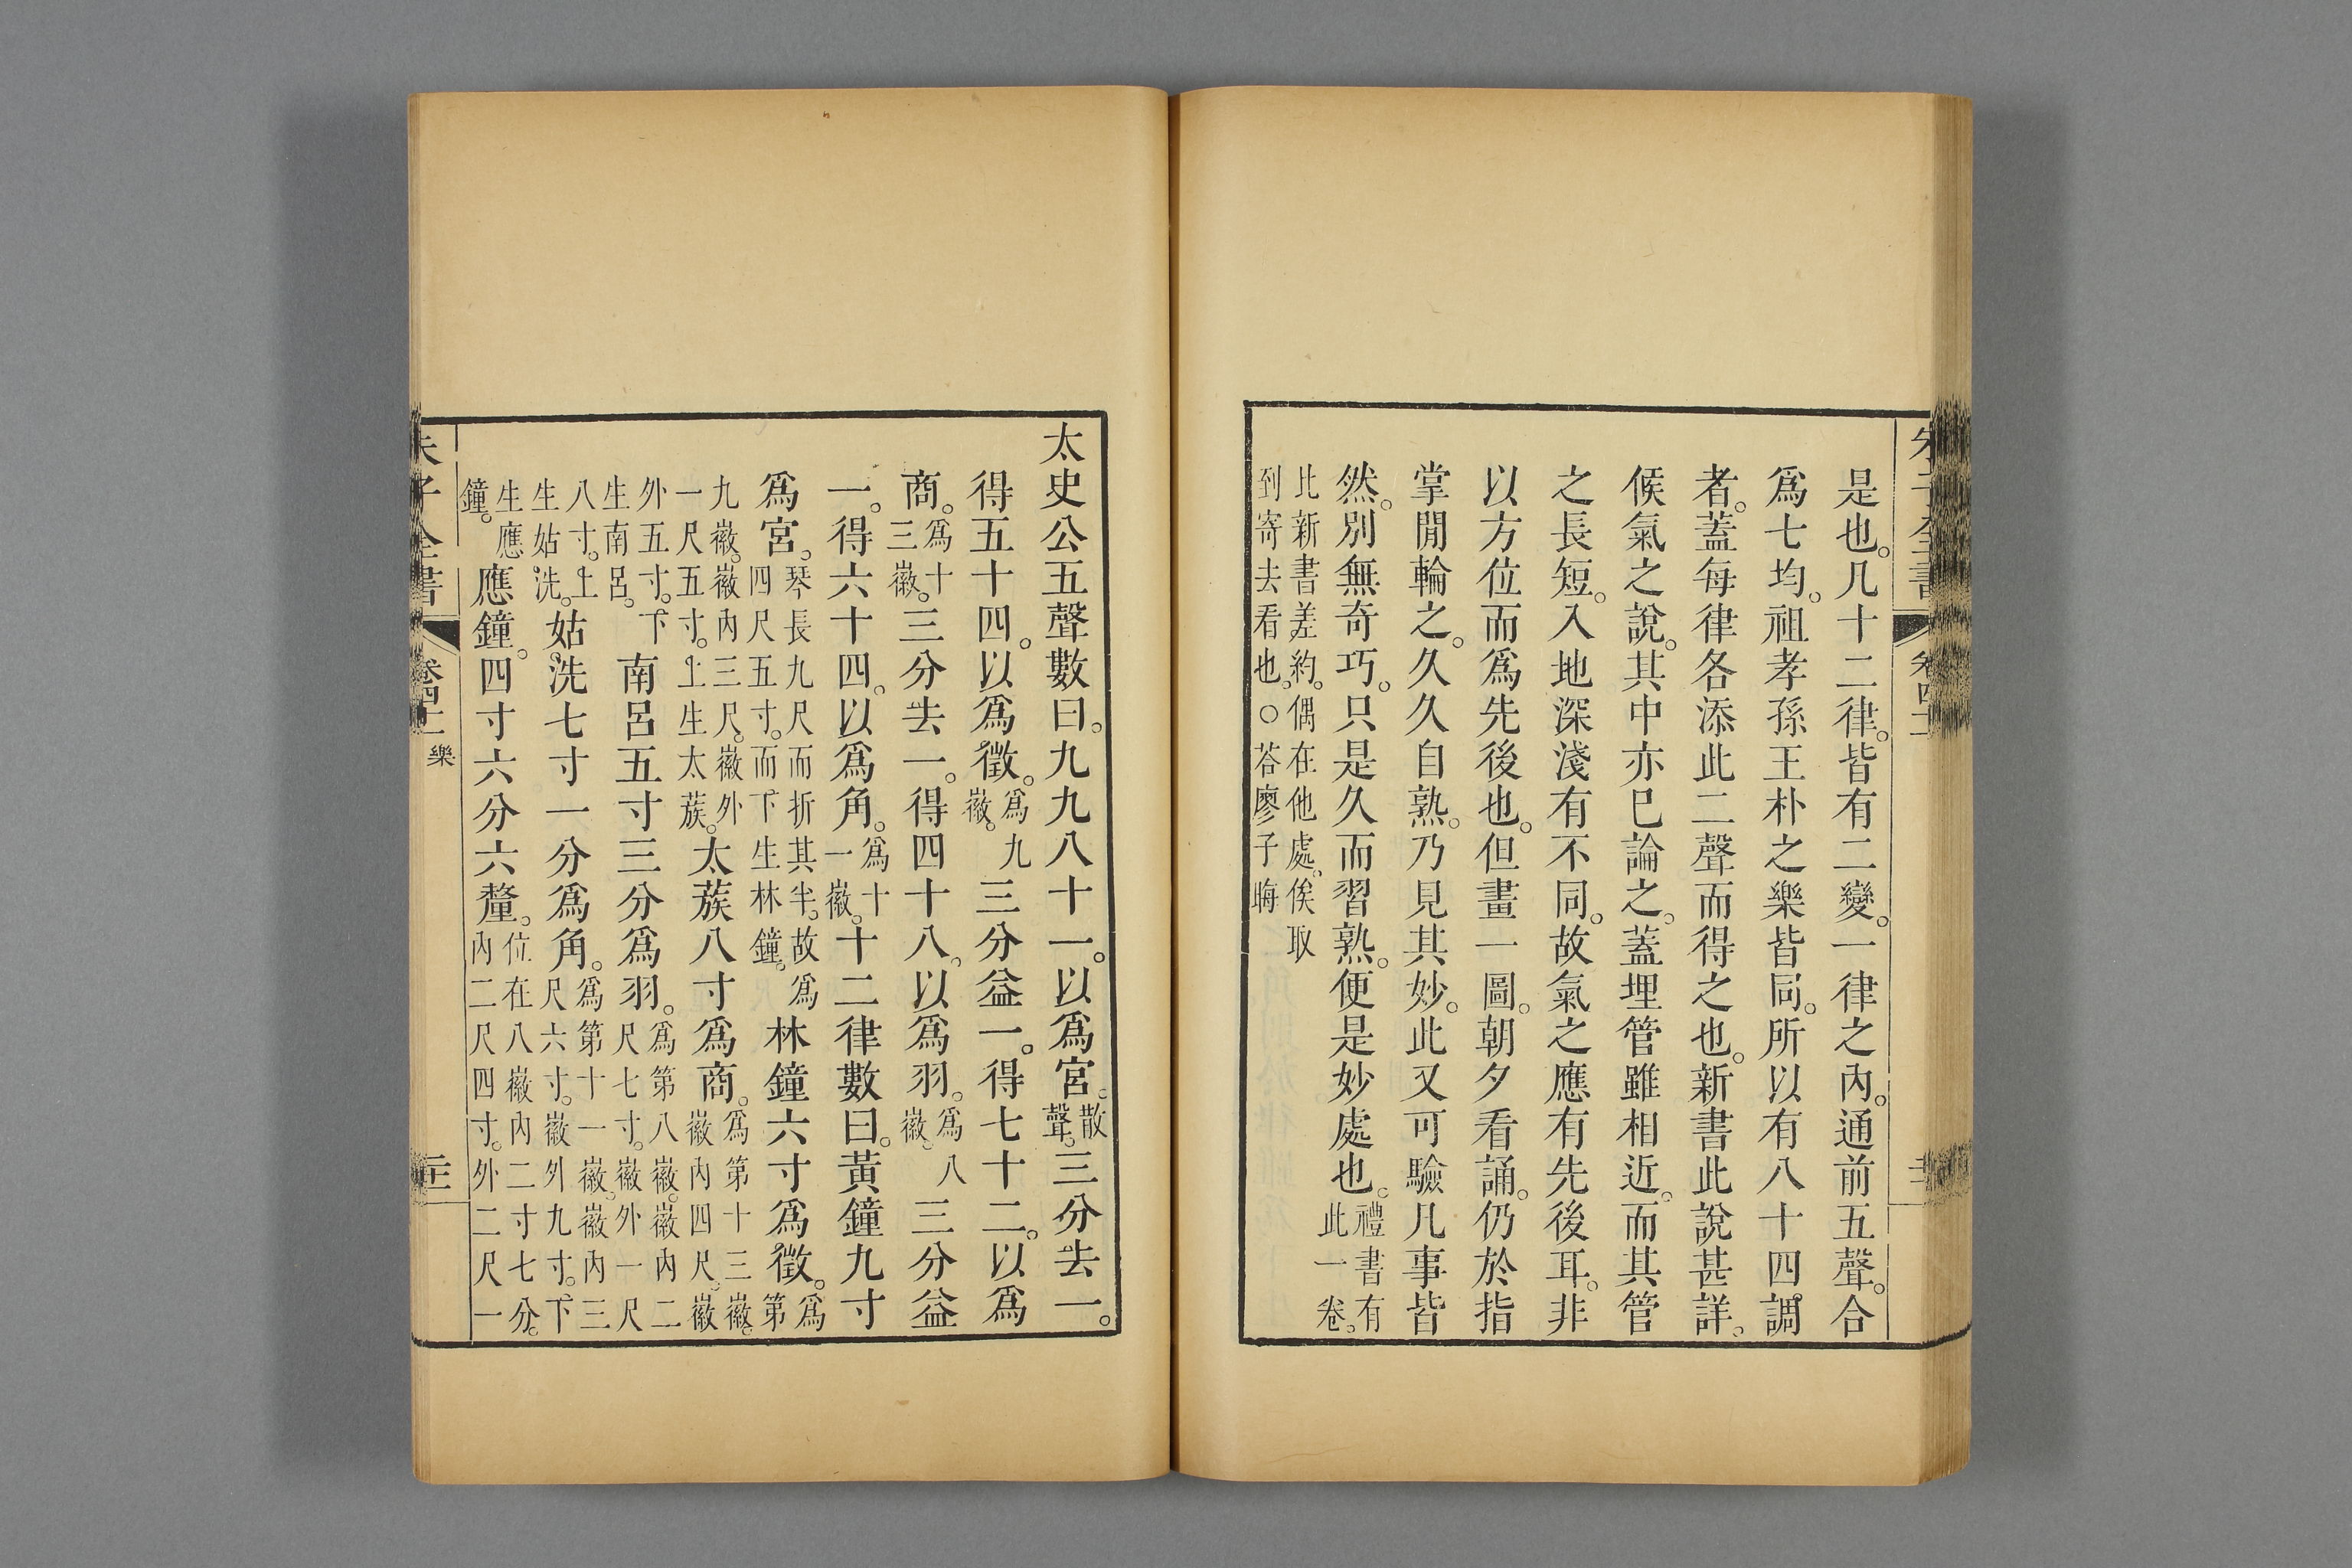 朱子全書 卷四十一
是也。凡十二律。皆有二變。一律之內。通前五聲。合
爲七均。祖孝孫王朴之樂皆同。所以有八十四調
者。蓋每律各添此二聲而得之也。新書此說甚詳。
候氣之說。其中亦已論之。蓋埋管雖相近。而其管
之長短。入地深淺有不同。故氣之應有先後耳。非
以方位而爲先後也。但畫一圖。朝夕看誦。仍於指
掌閒輪之。久久自熟。乃見其妙。此又可驗凡事皆
然。別無奇巧。只是久而習熟。便是妙處也。禮書有此一卷。
此新書差約。偶在他處。俟取
到寄去看也。○荅廖子晦
太史公五聲數曰。九九八十一。以爲宮。散聲。三分去一。
得五十四。以爲徵。爲九徽。三分益一。得七十二。以爲
商。爲十三徽。三分去一。得四十八。以爲羽。爲八徽。三分益
一。得六十四。以爲角。爲十一徽。十二律數曰。黃鐘九寸
爲宮。琴長九尺而折其半。故爲四尺五寸。而下生林鐘。林鐘六寸爲徵。爲第
九徽。徽內三尺。徽外一尺五寸。上生太蔟。太蔟八寸爲商。爲第十三徽。徽內四尺。徽
外五寸。下生南呂。南呂五寸三分爲羽。爲第八徽。徽內二尺七寸。徽外一尺
八寸。上生姑洗。姑洗七寸一分爲角。爲第十一徽。徽內三尺六寸。徽外九寸。下
生應鐘。應鐘。四寸六分六釐。位在八徽內二寸七分。內二尺四寸。外二尺一
朱子全書 卷四十一 樂